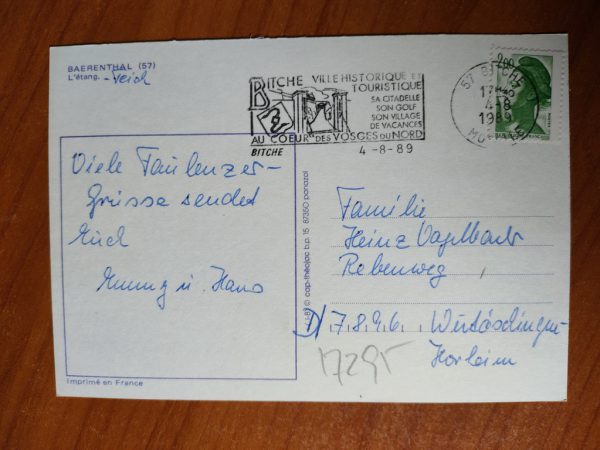 BAERENTHAL (57)
L'étang.
BITCHE VILLE HISTORIQUE ET
TOURISTIQUE
SA CITADELLE
SON GOLF
SON VILLAGE
DE VACANCES
AU COEUR DES VOSGES DU NORD
BITCHE
4-8-89
57 BITCHE
17H
4-8
1989
2,00
Viele Faulenzer-
Grüsse sendet
Euch
u. Hans
Familie
Heinz
Rebenweg
D/ 7896
Horheim
17295
cap-théojac b.p. 15 87350 panazol
Imprimé en France